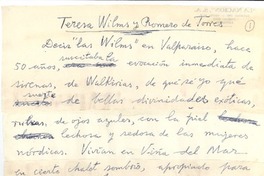 Teresa Wilms y Romero de Torres
1
Decir "las Wilms" en Valparaíso, hace
50 años, suscitaba la evocación inmediata de
sirenas, de Walkirias, de qué sé yo qué
suerte de bellas divinidades exóticas,
rubias, de ojos azules, con la piel
lechosa y sedosa de las mujeres
nórdicas. Vivían en Viña del Mar
en cierto chalet sombrío, apropiado para